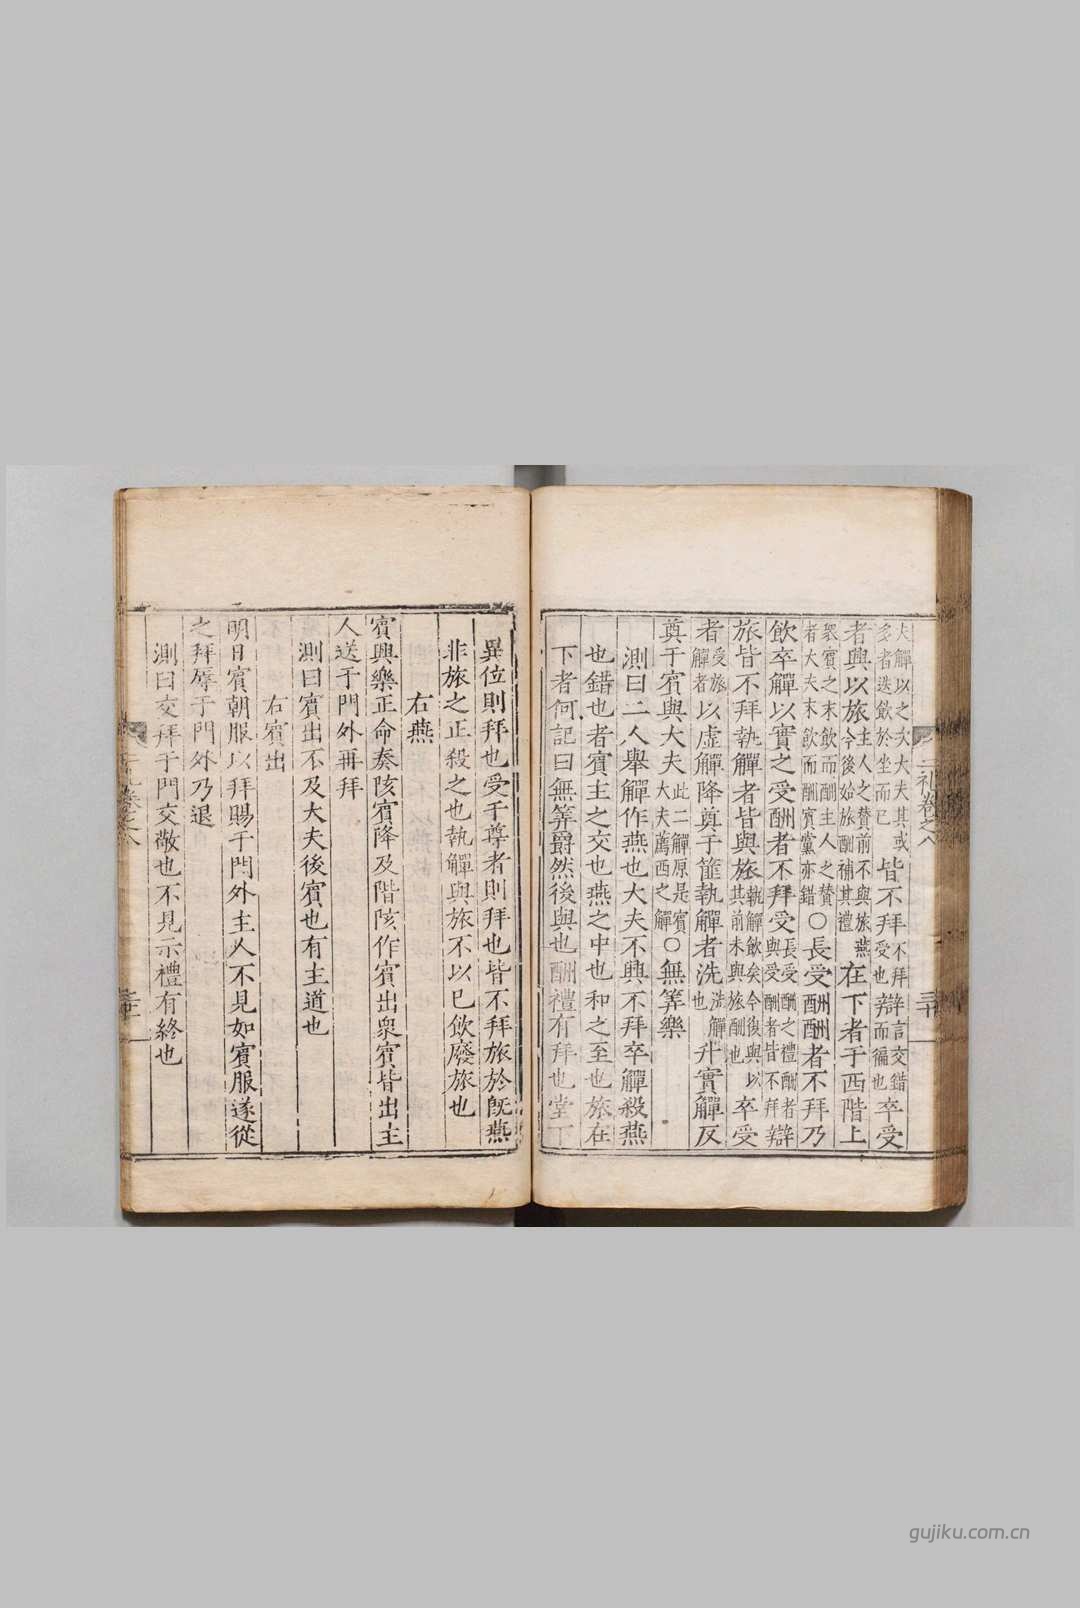 二礼卷之八 三十
夫觶以之次大夫其或多者迭飲於坐而已皆不拜不拜受也辯言交錯而徧也卒受
者興以旅主人之贊前不與旅燕今後始旅酬補其禮在下者于西階上
衆賓之末飲而酬主人之贊者大夫末飲而酬賓黨亦錯〇長受酬酬者不拜乃
飲卒觶以實之受酬者不拜受長受酬之禮酬者與受酬者皆不拜辯
旅皆不拜執觶者皆與旅執觶飲矣今復與以其前未與旅酬也卒受
者受旅觶者以虛觶降奠于篚執觶者洗洗觶也升實觶反
奠于賓與大夫此二觶原是賓大夫薦西之觶〇無筭樂
測曰二人舉觶作燕也大夫不興不拜卒觶殺燕
也錯也者賓主之交也燕之中也和之至也旅在
下者何記曰無筭爵然後與也酬禮有拜也堂下
異位則拜也受于尊者則拜也皆不拜旅於既燕
非旅之正殺之也執觶與旅不以已飲廢旅也
右燕
賓興樂正命奏陔賓降及階陔作賓出衆賓皆出主
人送于門外再拜
測曰賓出不及大夫後賓也有主道也
右賓出
明日賓朝服以拜賜于門外主人不見如賓服遂從
之拜辱于門外乃退
測曰交拜于門交敬也不見示禮有終也
gujiku.com.cn